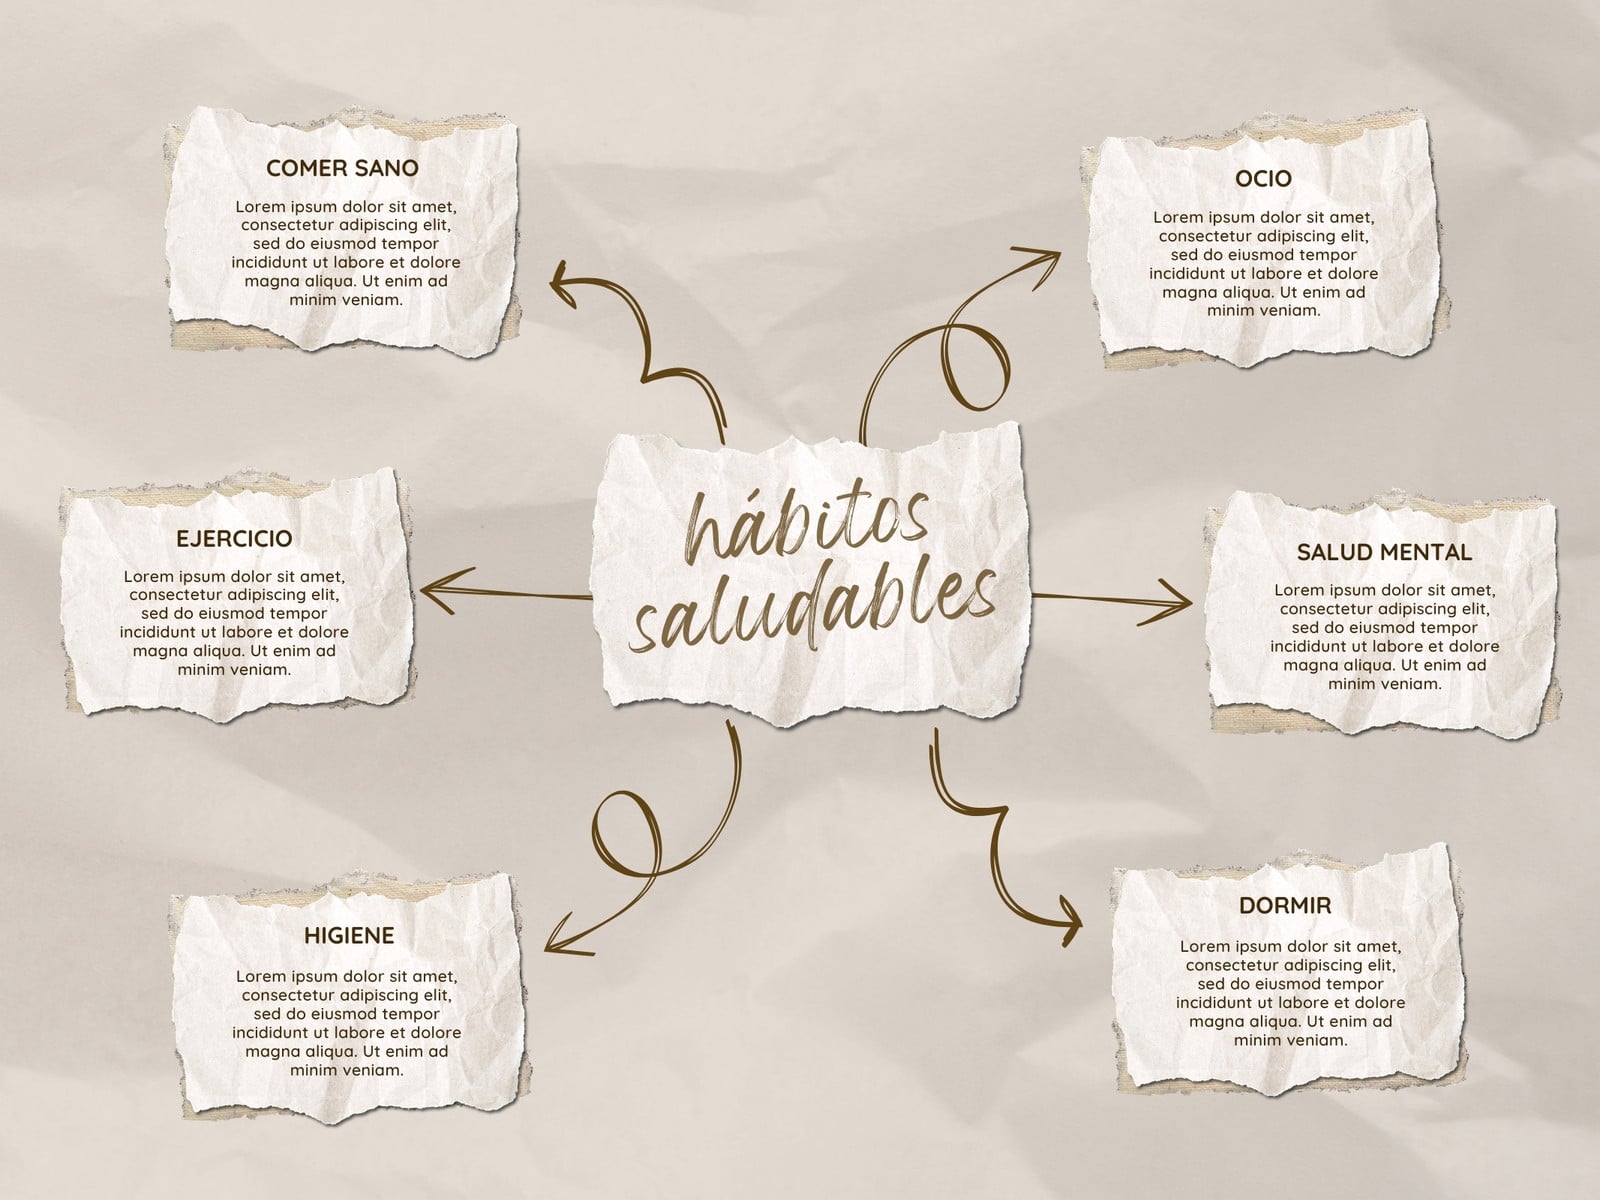 COMER SANO
Lorem ipsum dolor sit amet,
consectetur adipiscing elit,
sed do eiusmod tempor
incididunt ut labore et dolore
magna aliqua. Ut enim ad
minim veniam.
OCIO
Lorem ipsum dolor sit amet,
consectetur adipiscing elit,
sed do eiusmod tempor
incididunt ut labore et dolore
magna aliqua. Ut enim ad
minim veniam.
EJERCICIO
Lorem ipsum dolor sit amet,
consectetur adipiscing elit,
sed do eiusmod tempor
incididunt ut labore et dolore
magna aliqua. Ut enim ad
minim veniam.
hábitos
saludables
SALUD MENTAL
Lorem ipsum dolor sit amet,
consectetur adipiscing elit,
sed do eiusmod tempor
incididunt ut labore et dolore
magna aliqua. Ut enim ad
minim veniam.
HIGIENE
Lorem ipsum dolor sit amet,
consectetur adipiscing elit,
sed do eiusmod tempor
incididunt ut labore et dolore
magna aliqua. Ut enim ad
minim veniam.
DORMIR
Lorem ipsum dolor sit amet,
consectetur adipiscing elit,
sed do eiusmod tempor
incididunt ut labore et dolore
magna aliqua. Ut enim ad
minim veniam.